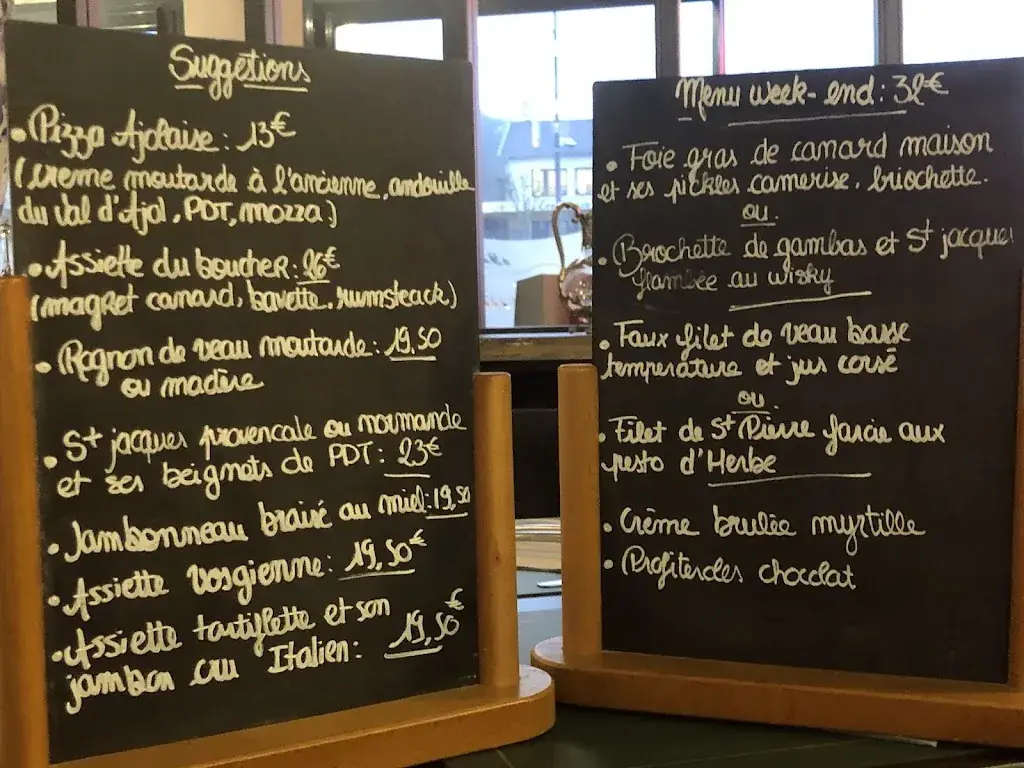 Suggestions
• Pizza Ajolaise : 13€
(creme moutarde à l'ancienne, andouille
du Val d'Ajol, PDT, mozza)
• Assiette du boucher : 26€
(magret canard, bavette, rumsteack)
• Rognon de veau moutarde : 19,50
ou madère
• St jacques provencale ou normande
et ses beignets de PDT : 23€
• Jambonneau braisé au miel : 19,50
• Assiette vosgienne : 19,50€
• Assiette tartiflette et son
jambon cru Italien : 19,50€
Menu week-end : 32€
• Foie gras de canard maison
et ses pickles camerise, briochette.
ou.
• Brochette de gambas et St jacques
flambée au wisky
• Faux filet de veau basse
température et jus corsé
ou.
• Filet de St Pierre farcie aux
pesto d'Herbe
• Crème brulée myrtille
• Profiteroles chocolat